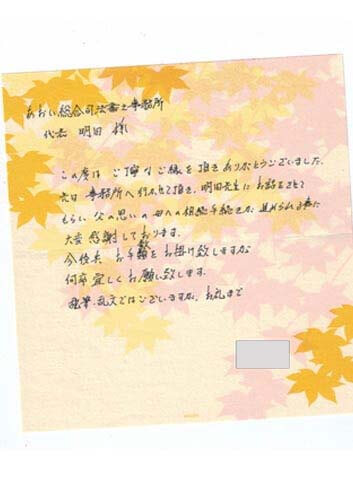 あおい総合司法書士事務所
代表 明田 様
この度は ご丁寧なご縁を頂きありがとうございました。
先日 事務所へ行かせて頂き、明田先生に お話をさせて
もらい 父の思いの母への相続手続きが 進められる事に
大変 感謝しております。
今後共 お手数を お掛け致しますが
何卒 宜しくお願い致します。
乱筆・乱文ではございますが、お礼まで